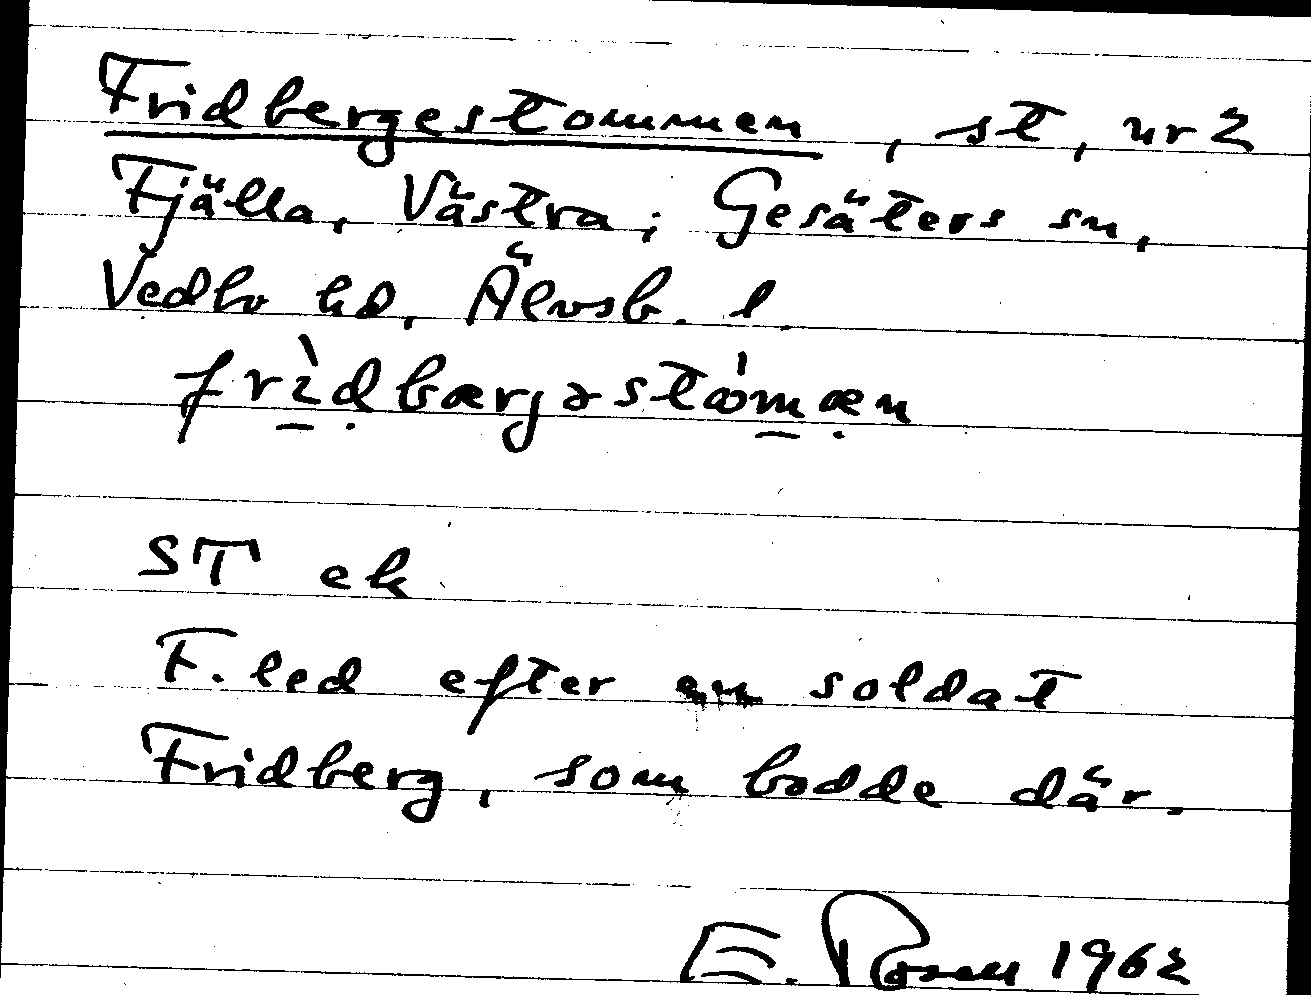 Fridbergestommen, st, nr 2
Fjälla, Västra; Gesäters sn,
Vedbo hd, Älvsb. l.
frìdbærjəstómæn
ST ek
F. led efter en soldat
Fridberg, som bodde där.
E. Rosen 1962